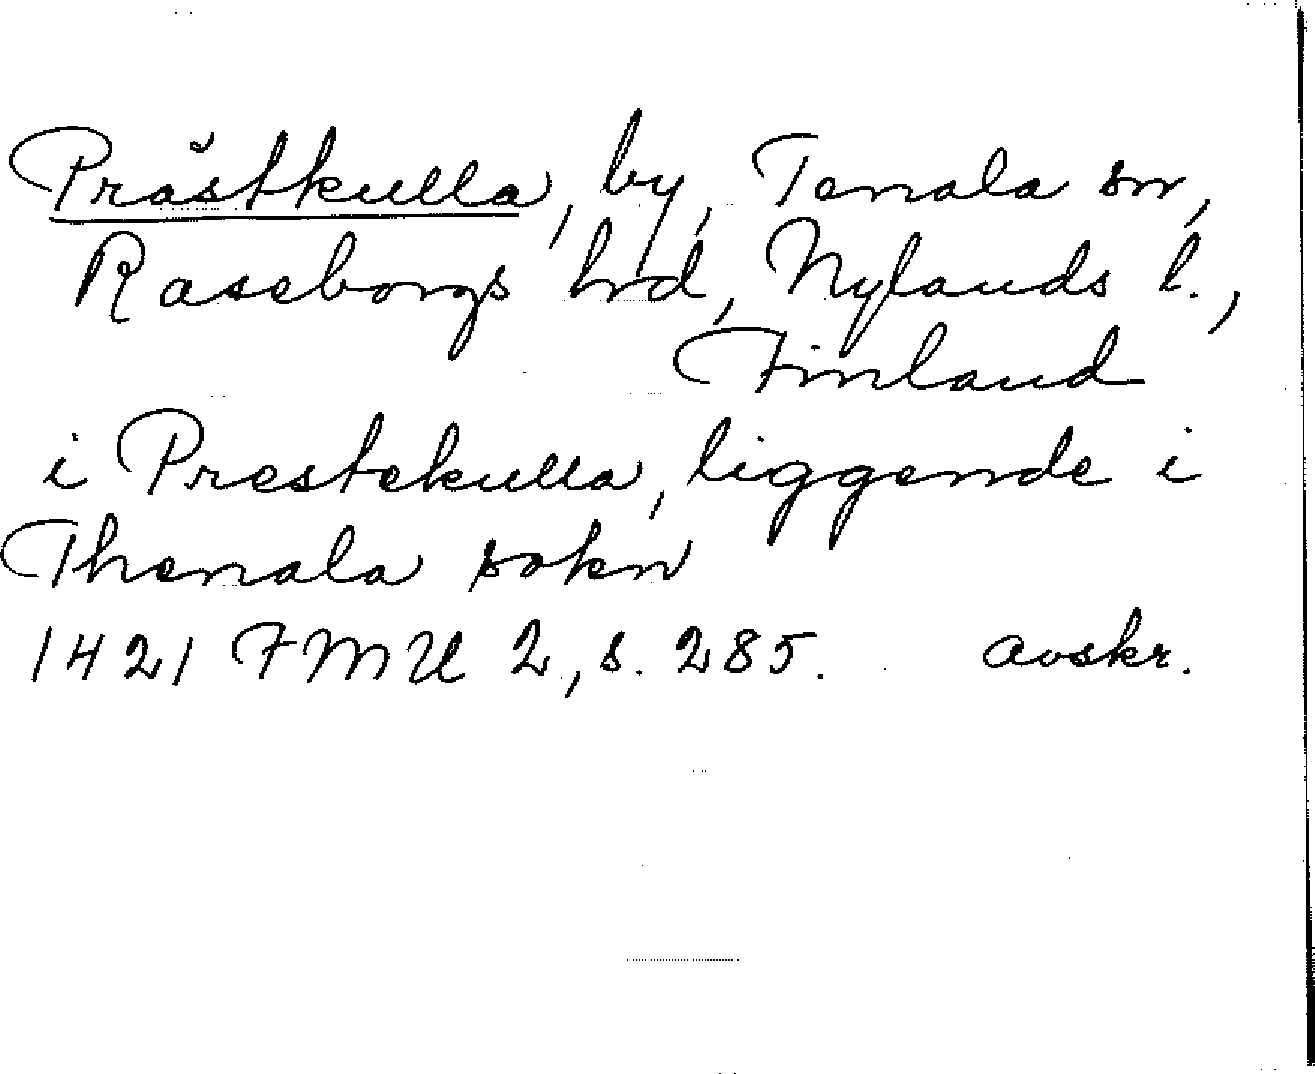 Prästkulla, by, Tenala sn,
Raseborgs hrd, Nylands l.,
Finland
i Prestekulla, liggende i
Thenala sokn
1421 FMU 2, s. 285. avskr.